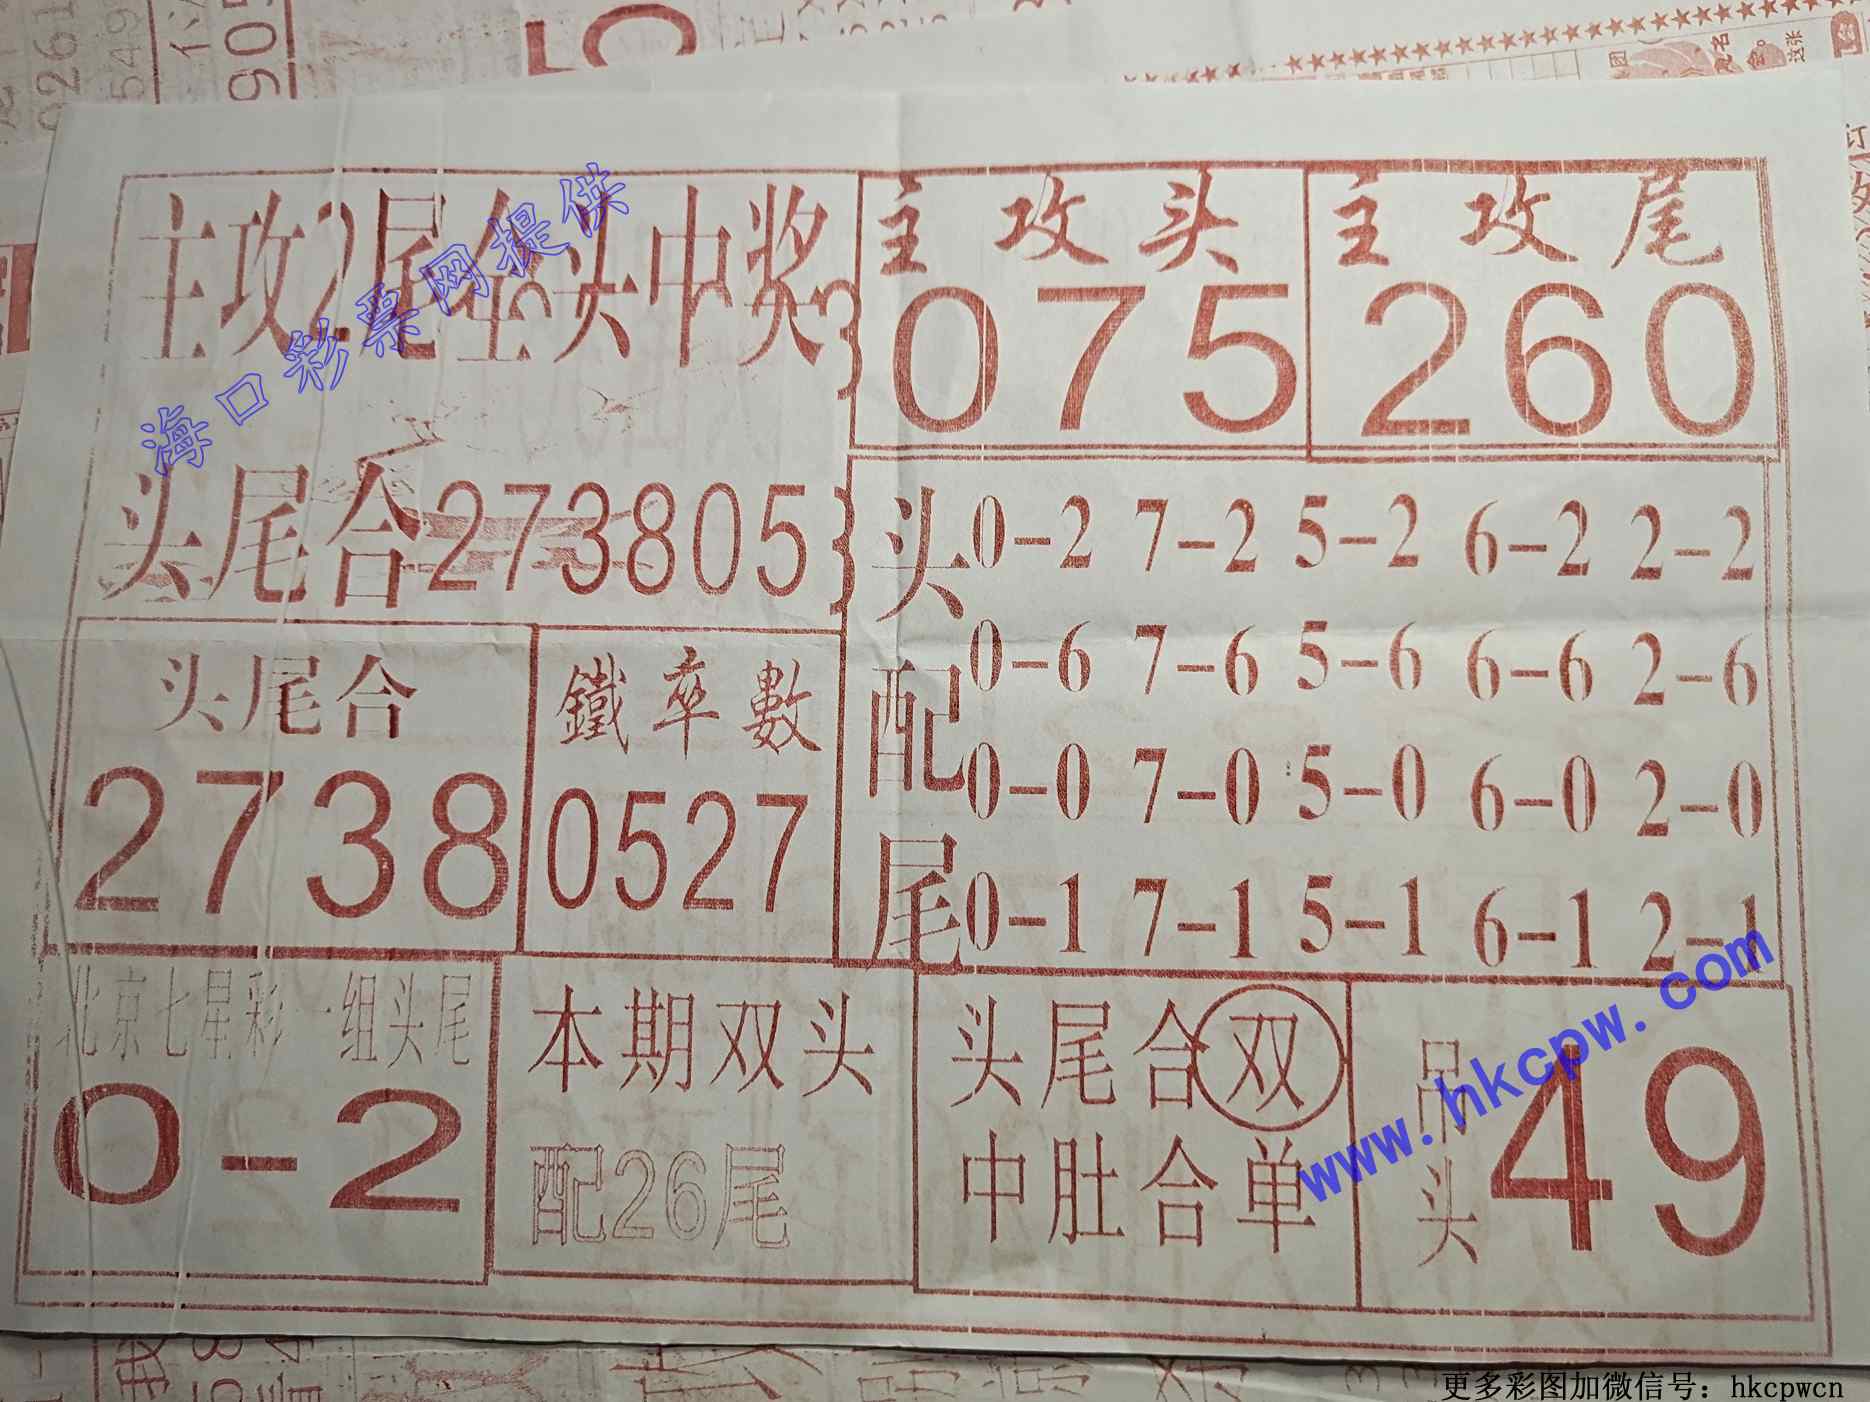 主攻2尾全头中奖
海口彩票网提供
头尾合273805
主攻头
075
主攻尾
260
头配尾
0-2 7-2 5-2 6-2 2-2
0-6 7-6 5-6 6-6 2-6
0-0 7-0 5-0 6-0 2-0
0-1 7-1 5-1 6-1 2-1
头尾合
2738
鐵率數
0527
北京七星彩一组头尾
0-2
本期双头
配26尾
头尾合双
中肚合单
吊头
49
www.hkcpw.com
更多彩图加微信号：hkcpwcn